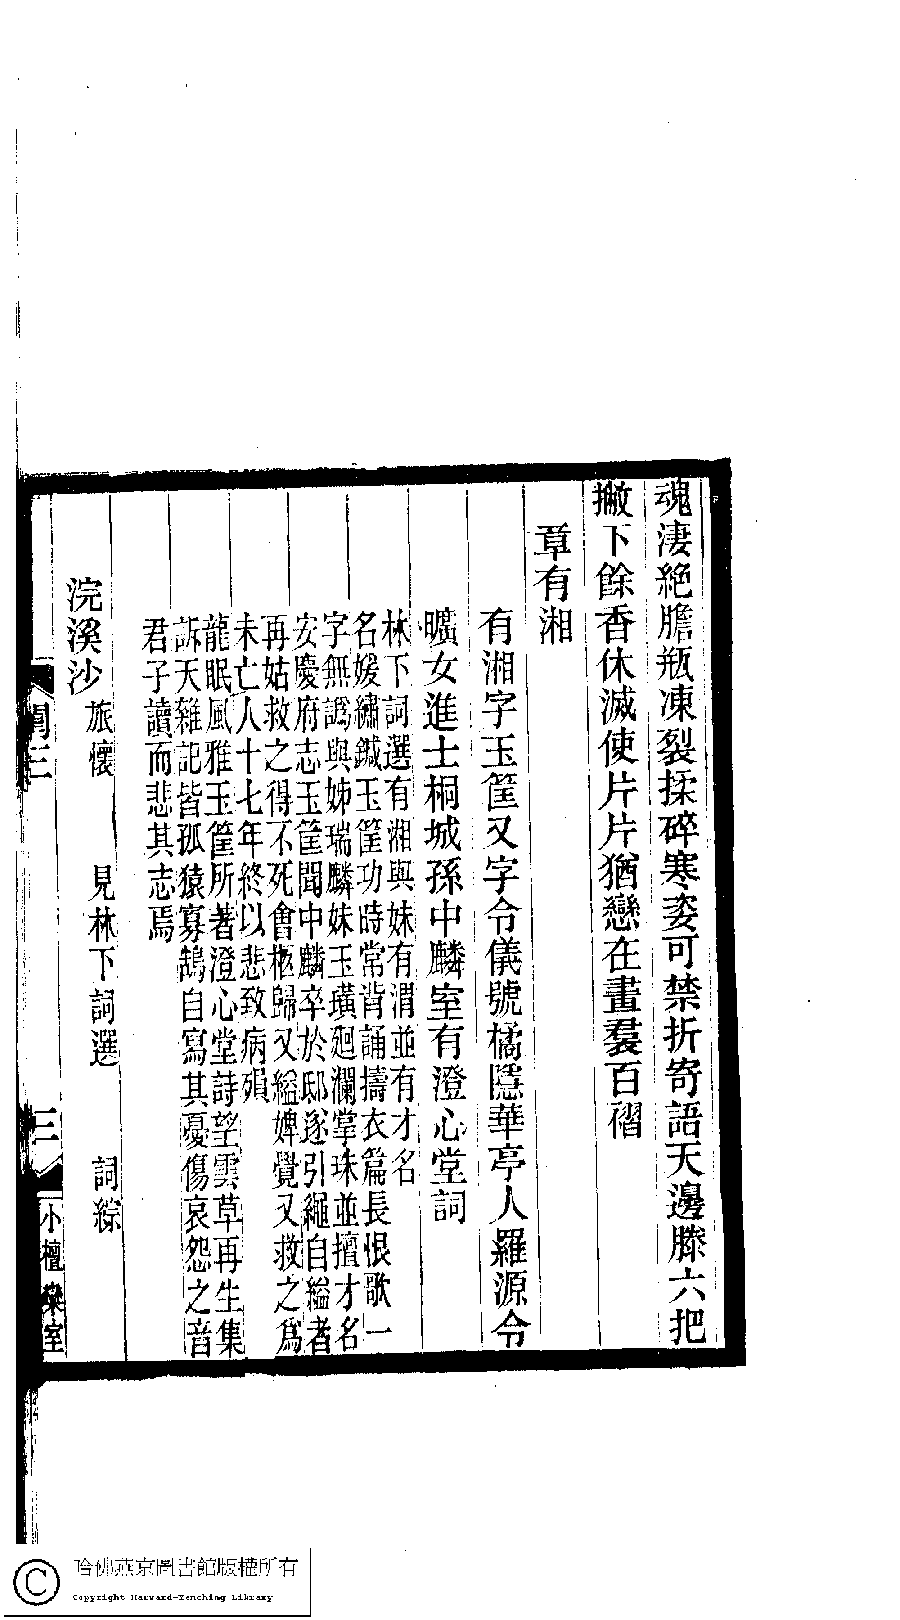 魂淒絶膽瓶凍裂揉碎寒姿可禁折寄語天邊滕六把
撇下餘香休滅使片片猶戀在畫羣百褶
章有湘
有湘字玉筐又字令儀號橘隱華亭人羅源令
曠女進士桐城孫中麟室有澄心堂詞
林下詞選有湘與妹有渭並有才名
名媛繡鍼玉筐功時常背誦擣衣篇長恨歌一
字無譌與姊瑞麟妹玉璜廻瀾掌珠並擅才名
安慶府志玉筐聞中麟卒於邸遂引繩自縊者
再姑救之得不死會柩歸又縊婢覺又救之爲
未亡人十七年終以悲致病殞
龍眠風雅玉筐所著澄心堂詩望雲草再生集
訴天雜記皆孤猿寡鵠自寫其憂傷哀怨之音
君子讀而悲其志焉
浣溪沙 旅懷 見林下詞選 詞綜
閏三 三 小檀欒室
哈佛燕京圖書館版權所有
Copyright Harvard-Yenching Library